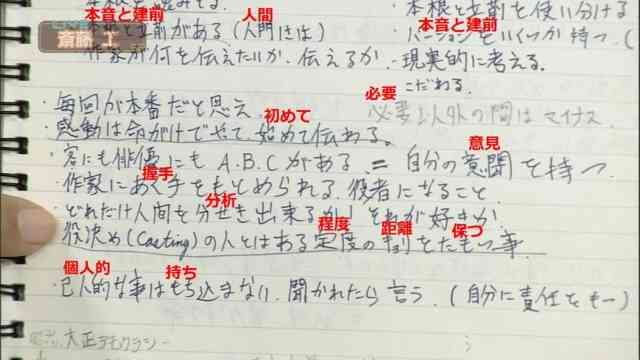 本音と建前 人間 本音と建前
斎藤 工
・本根と立前を使い分ける
本根と立前がある(人門とは)
作家が何を伝えたいか、伝えるか、現実的に考える。
必要 こだわる。
・毎回が本番だと思え 必要以外の間はマイナス
初めて
・感動は命がけでやって始めて伝わる。
意見
・客にも俳優にもA.B.Cがある = 自分の意聞を持つ
握手
・作家にあく手をもとめられる役者になること
分析
・どれだけ人間を分せきを出来るか! それが好きか
程度 距離 保つ
・役決め(Casting)の人とはある定度のキョリをたもつ事
個人的 持ち
・己人的な事はもち込まない。聞かれたら言う。(自分に責任を
大正デモクラシー